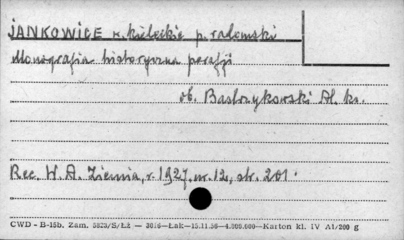 JANKOWICE w. kieleckie p. radomski
Monografia historyczna parafji
ob. Bastrzykowski Al. ks.
Rec. W. A. Ziemia, r. 1927, nr. 12, str. 201.
CWD - B-15b. Zam. 5823/S/Łż — 3016—Łak—15.11.56—4.000.000—Karton kl. IV A1/200 g